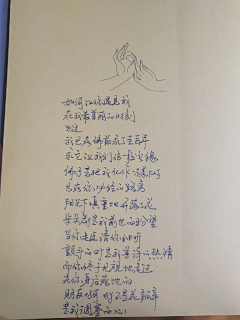 如何让你遇见我
在我最美丽的时刻
为这
我已在佛前求了五百年
求它让我们结一段尘缘
佛于是把我化作一棵树
长在你必经的路旁
阳光下慎重地开满了花
朵朵都是我前世的盼望
当你走近请你细听
颤抖的叶是我等待的热情
而你终于无视地走过
在你身后落地的
朋友啊 那不是花瓣
是我凋零的心